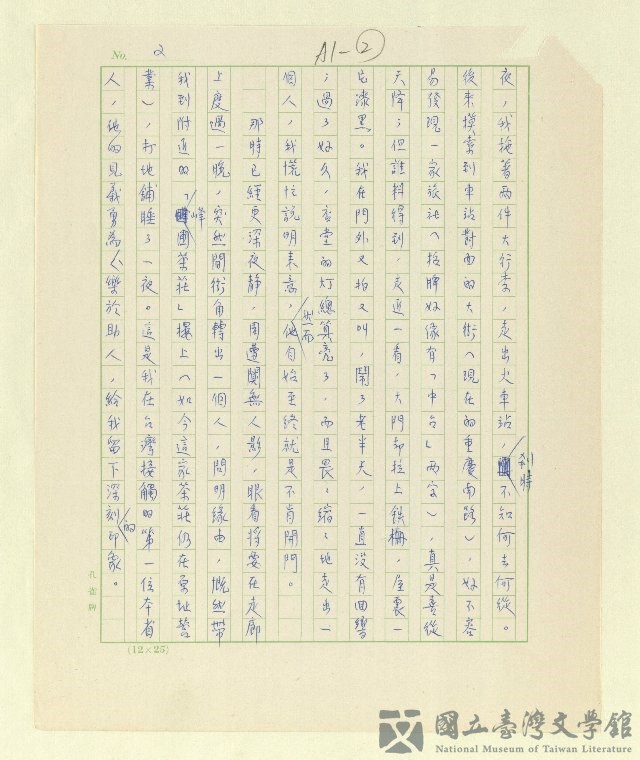 No. 2
A1-②
夜，我拖著兩件大行李，走出火車站，剎時不知何去何從。
後來摸索到車站對面的大街（現在的重慶南路），好不容
易發現一家旅社（招牌好像有「中台」兩字），真是喜從
天降；但誰料得到，走近一看，大門卻拉上鉄柵，屋裏一
片漆黑。我在門外又拍又叫，鬧了老半天，一直沒有回響
；過了好久，客堂的灯總算亮了，而且畏畏縮縮地走出一
個人，我慌忙說明來意。然而他自始至終就是不肯開門。
那時已經更深夜靜，周遭闃無人影，眼看將要在走廊
上度過一晚，突然間街角轉出一個人，問明緣由，慨然帶
我到附近的「峰圃茶莊」樓上（如今這家茶莊仍在原址營
業），打地鋪睡了一夜。這是我在台灣接觸的第一位本省
人，他的見義勇為、樂於助人，給我留下深刻的印象。
(12×25)
國立臺灣文學館
National Museum of Taiwan Literature